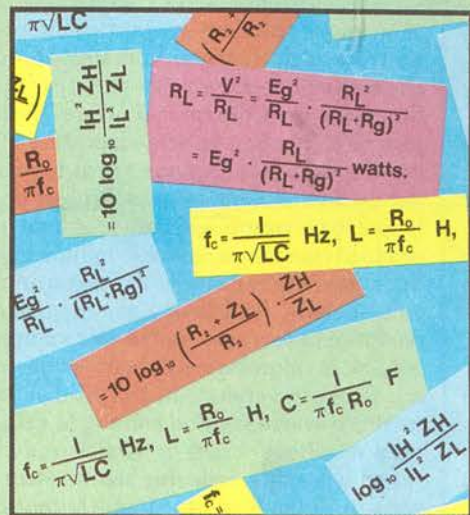 π√LC
(R₂ / R₂
= 10 log₁₀ I_H² Z_H / I_L² Z_L
R_L = V² / R_L = Eg² / R_L · R_L² / (R_L+Rg)²
= Eg² · R_L / (R_L+Rg)² watts.
R₀ / πf_c
f_c = 1 / π√LC Hz, L = R₀ / πf_c H,
Eg² / R_L · R_L² / (R_L+Rg)²
= 10 log₁₀ (R₂ + Z_L / R₂) · Z_H / Z_L
f_c = 1 / π√LC Hz, L = R₀ / πf_c H, C = 1 / πf_c R₀ F
log₁₀ I_H² Z_H / I_L² Z_L
f_c =